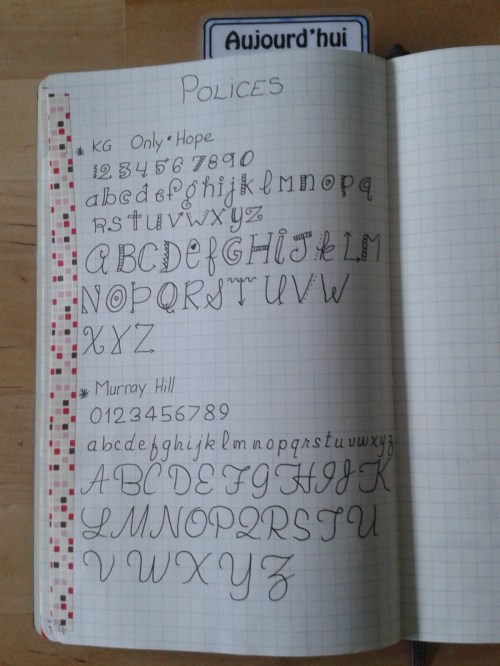 Aujourd'hui
POLICES
* KG Only • Hope
1234567890
abcdefghijklmnopq
rstuvwxyz
ABCDEFGHIJKLM
NOPQRSTUVW
XYZ
* Murray Hill
0123456789
abcdefghijklmnopqrstuvwxyz
ABCDEFGHIJK
LMNOPQRSTU
VWXYZ